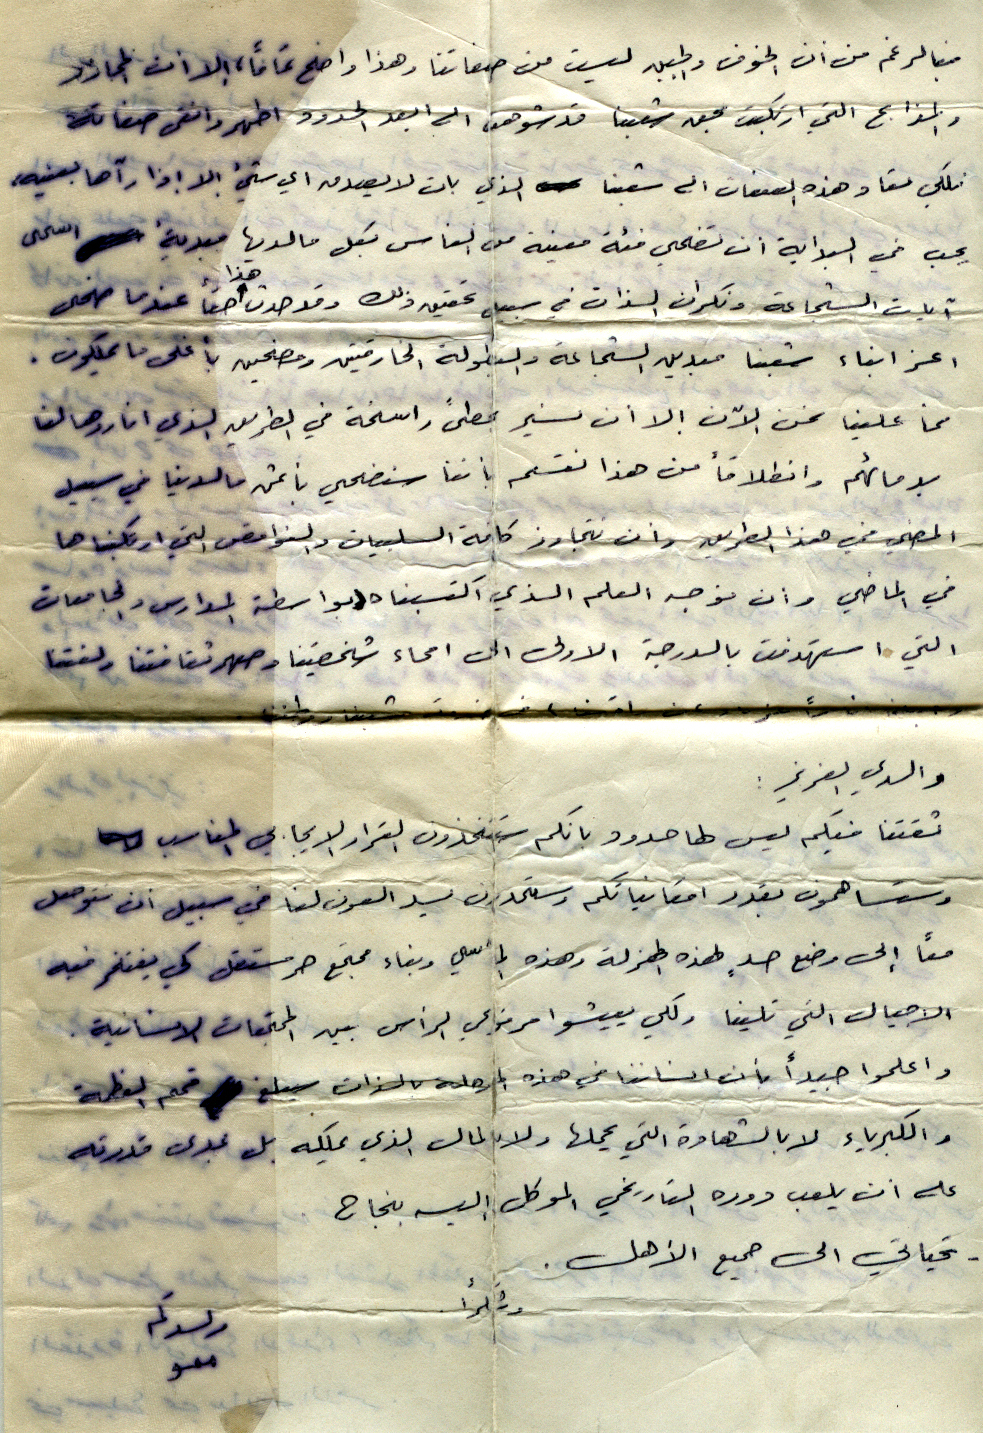 فبالرغم من ان الخوف والجبن ليست من صفاتنا وهذا واضح تماماً، الا ان المجازر
والمذابح التي ارتكبت بحق شعبنا قد شوهت الى ابعد الحدود اطهر وانقى صفاته
فلكي تعاد هذه الصفات الى شعبنا الذي بات لا يصدق اي شيء إلا إذا رآها بعينيه،
يجب في البداية ان تضحي فئة معينة من الناس بكل مالديها مبدية اسمى
آيات الشجاعة ونكران الذات في سبيل تحقيق ذلك وقد حدث هذا حقاً عندما ضحى
اعز ابناء شعبنا مبدين الشجاعة والبطولة الخارقتين ومضحين بأغلى ما يملكون.
فما علينا نحن الآن إلا ان نسير بخطىً راسخة في الطريق الذي اناروها لنا
بدمائهم وانطلاقاً من هذا نقسم بأننا سنضحي بأثمن مالدينا في سبيل
المضي في هذا الطريق وان نتجاوز كافة السلبيات والنواقص التي ارتكبناها
في الماضي وان نوجه العلم الذي اكتسبناه بواسطة المدارس والجامعات
التي استهدفت بالدرجة الاولى الى امحاء شخصيتنا وصهر ثقافتنا ولغتنا
شعبنا ووطننا
والدي العزيز :
ثقتنا فيكم ليس لها حدود بانكم ستتخذون القرار الايجابي المناسب
وستساهمون بقدر امكانياتكم وستمدون يد العون لنا في سبيل ان نتوصل
معاً إلى وضع حدٍ لهذه المهزلة وهذه المآسي وبناء مجتمع حر مستقل كي يفتخر فيه
الاجيال التي تلينا ولكي يعيشوا مرفوعي الرأس بين المجتمعات الانسانية .
واعلموا جيداً بأن انساننا في هذه المرحلة بالذات سيبلغ قمم العظمة
والكبرياء لا بالشهادة التي يحملها ولا بالمال الذي يملكه بل بمدى قدرته
على ان يلعب دوره التاريخي الموكل اليه بنجاح .
- تحياتي الى جميع الأهل .
وشكراً .
ولدكم